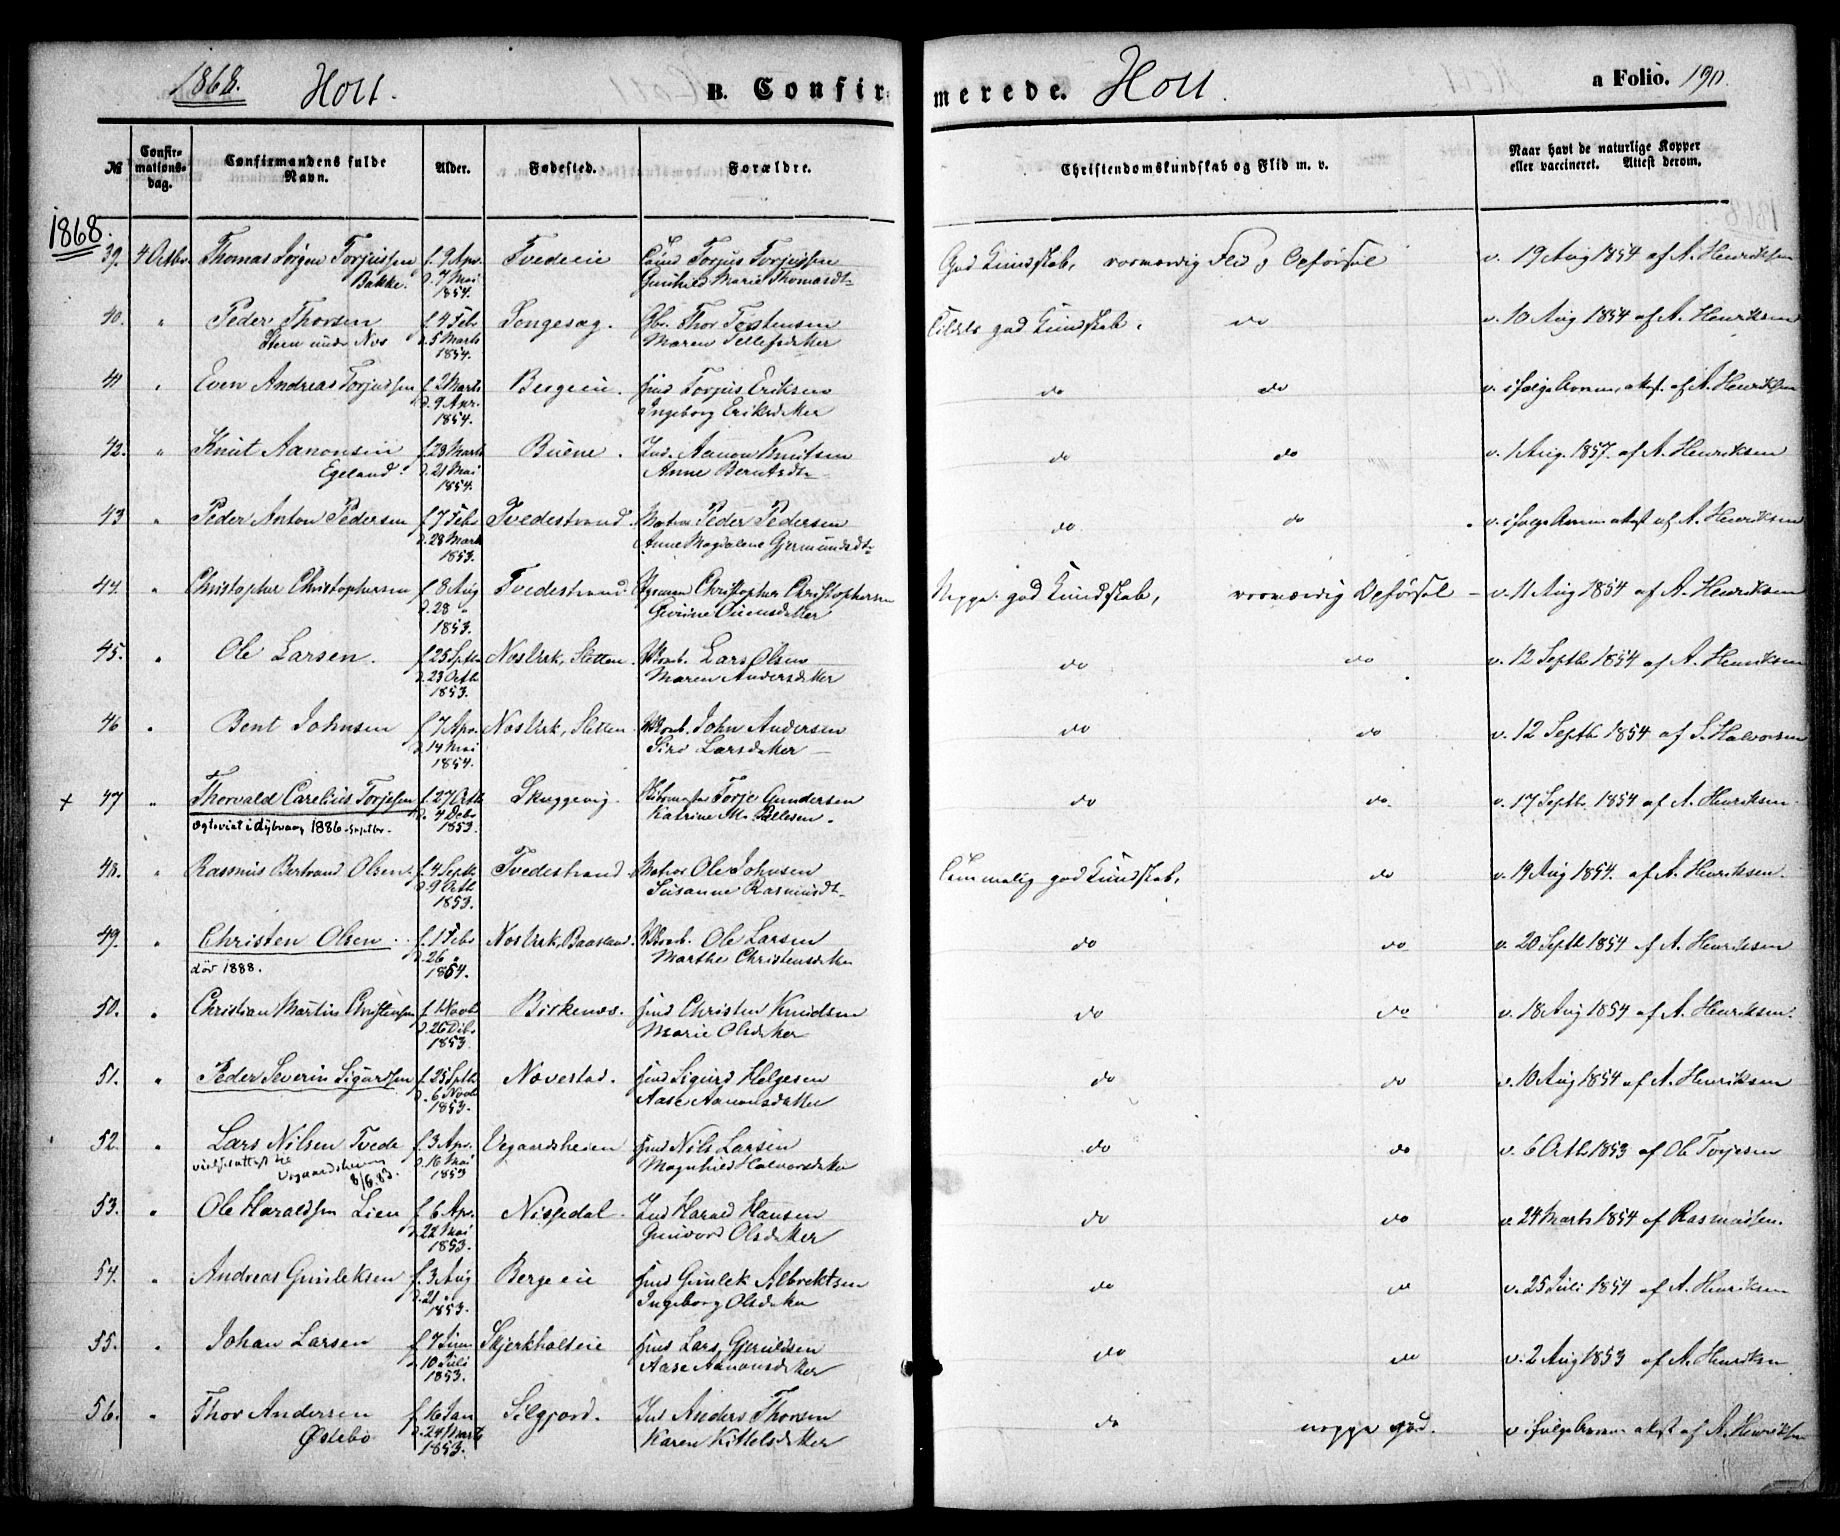 1868. Holt. B. Confirmerede. Holt. a Folio. 190.
№ Confirmations-dag. Confirmandens fulde Navn. Alder. Fødested. Forældre. Christendomskundskab og Flid m. v. Naar havt de naturlige Kopper eller vaccineret. Attest derom.
1868.
39. 4 Octbr. Thomas Jørgen Torjussen f. 9 Apr. Tvedeeie Torjus Torjussen God Kundskab, vormærdig Flid og Opførsel v. 19 Aug 1854 af A. Henriksen
Bakke. d. 7 Mai Gunhild Marie Thomasdt.
1854.
40. " Peder Thorsen f. 4 Feb Songesag. Gbr. Thor Tostensen Tildels god Kundskab, do v. 10 Aug 1854 af A. Henriksen
under Nes d. 5 Marts Maren Tellefsdatter
1854.
41 " Even Andreas Torjussen f. 2 Marts Bergeeie. Torjus Eriksen do do v. ifølge af A. Henriksen
d. 9 Apr. Ingeborg Eriksdatter
1854.
42. " Knut Aanonsen f. 23 Marts Buene. Ind. Aanon Knutsen do do v. 1 Aug. 1857. af A. Henriksen
Egeland. d. 21 Mai Anne Berntsdt.
1854.
43 " Peder Anton Pedersen f. 7 Feb Tvedestrand. Matros Peder Pedersen do do v. ifølge af A. Henriksen
d. 28 Marts Anne Magdalene Gjermundsdt.
1853.
44. " Christopher Christophersen f. 8 Aug Tvedestrand Christopher Christophersen Nogga god Kundskab, vormærdig Opførsel v. 11 Aug 1854 af A. Henriksen
d. 28 "
1853.
45. " Ole Larsen. f. 25 Septbr Nes Verk, Sletten. Lars Olsen do do v. 12 Septb 1854 af A. Henriksen
d. 23 Octb Maren Andersdatter
1853.
46 " Bent Johnsen f. 7 Apr. Nes Verk, Sletten. John Andersen do do v. 12 Septb 1854 af S. Halvorsen
d. 14 Mai Siri Larsdatter
1854.
+ 47 " Thorvald Carelius Torjesen f. 27 Octb Skuggevig. Torje Gundersen do do v. 17 Septb. 1854 af A. Henriksen.
Ogteviet i Dybvaag 1886. Septbr. d. 4 Decbr Katrine M. Pellesen.
1853.
48. " Rasmus Bertrand Olsen. f. 4 Septb Tvedestrand Matros Ole Johnsen Temmelig god Kundskab, do v. 19 Aug 1854. af A. Henriksen.
d. 9 Octb Susanne Rasmusdt.
1853.
49. " Christen Olsen f. 1 Feb Nes Verk, Baasland. Ole Larsen do do v. 20 Septb 1854 af A. Henriksen
död 1888. d. 26 " Marthe Christensdatter
1854.
50. " Christian Martin Christensen f. 1 Novb Birkenæs. Christen Knudsen do do v. 18 Aug 1854 af A. Henriksen.
d. 26 Decb Marie Olsdatter
1853.
51. " Peder Severin Sigurdsen f. 25 Septb Nævestad. Sigurd Helgesen do do v. 10 Aug 1854 af A. Henriksen
d. 6 Novb Aase Aanonsdatter
1853.
52. " Lars Nilsen Tvede f. 3 Apr. Vegaardsheien Nils Larsen do do v. 6 Octb 1853 af Ole Torjesen
vielsesattest til d. 16 Mai Magnhild Halvorsdatter
Vegaardsheien 1853
8/6.83.
53. " Ole Haraldsen Lien f. 6 Apr. Nissedal. Ind Harald Hansen do do v. 24 Marts 1854 af Rasmussen.
d. 22 Mai Gunvor Olsdatter
1853.
54. " Andreas Gunleksen f. 3 Aug Bergeeie Gunlek Albrektsen do do v. 25 Juli 1854 af A. Henriksen
d. 21 " Ingeborg Olsdatter
1853.
55. " Johan Larsen f. 7 Juni Skjerkholteie Lars Gjeruldsen do do v. 2 Aug 1853 af A. Henriksen
d. 10 Juli Aase Aanonsdatter
1853.
56. " Thor Andersen f. 16 Jan Silgjord. Ind Anders Thorsen do nogga god. v. ifølge af A. Henriksen
Østebø d. 24 Marts Karen Kittelsdatter
1853.